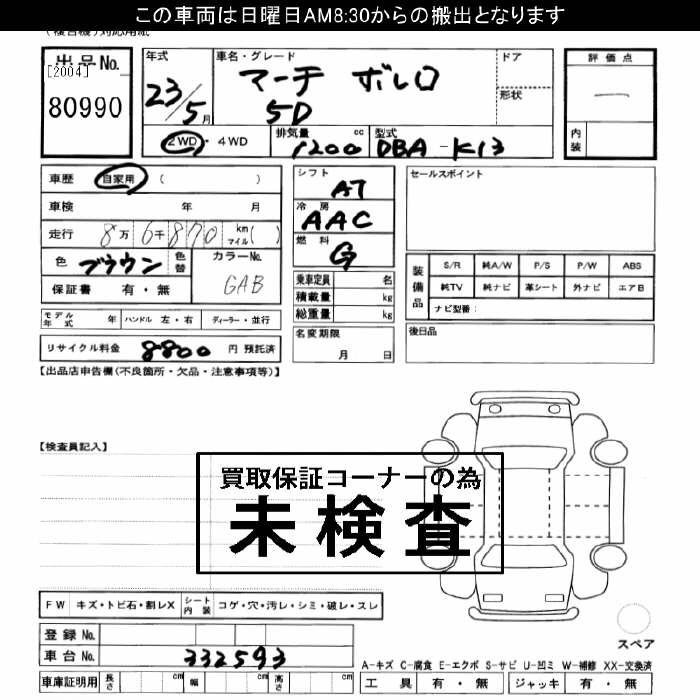 この車両は日曜日AM8:30からの搬出となります
出品No.
[2004]
80990
年式
23/5月
車名・グレード
マーチ ボレロ
5D
ドア
形状
評価点
内装
2WD・4WD
排気量 cc
1200
型式
DBA-K13
車歴 自家用 ( )
車検 年 月
走行 8万6千870 km マイル( )
色 ブラウン 色替
カラーNo.
GAB
保証書 有・無
モデル年式 年 ハンドル 左・右 ディーラー・並行
リサイクル料金 8800 円 預託済
シフト
AT
冷房
AAC
燃料
G
乗車定員 名
積載量 kg
総重量 kg
名変期限
月 日
セールスポイント
装備品
S/R 純A/W P/S P/W ABS
純TV 純ナビ 革シート 外ナビ エアB
ナビ型番:
後日品
【出品店申告欄(不良箇所・欠品・注意事項等)】
【検査員記入】
買取保証コーナーの為
未検査
FW キズ・トビ石・割レX シート内装 コゲ・穴・汚レ・シミ・破レ・スレ
登録No.
車台No. 332593
車庫証明用 長さ cm 幅 cm 高さ cm
スペア
A-キズ C-腐食 E-エクボ S-サビ U-凹ミ W-補修 XX-交換済
工具 有・無 ジャッキ 有・無